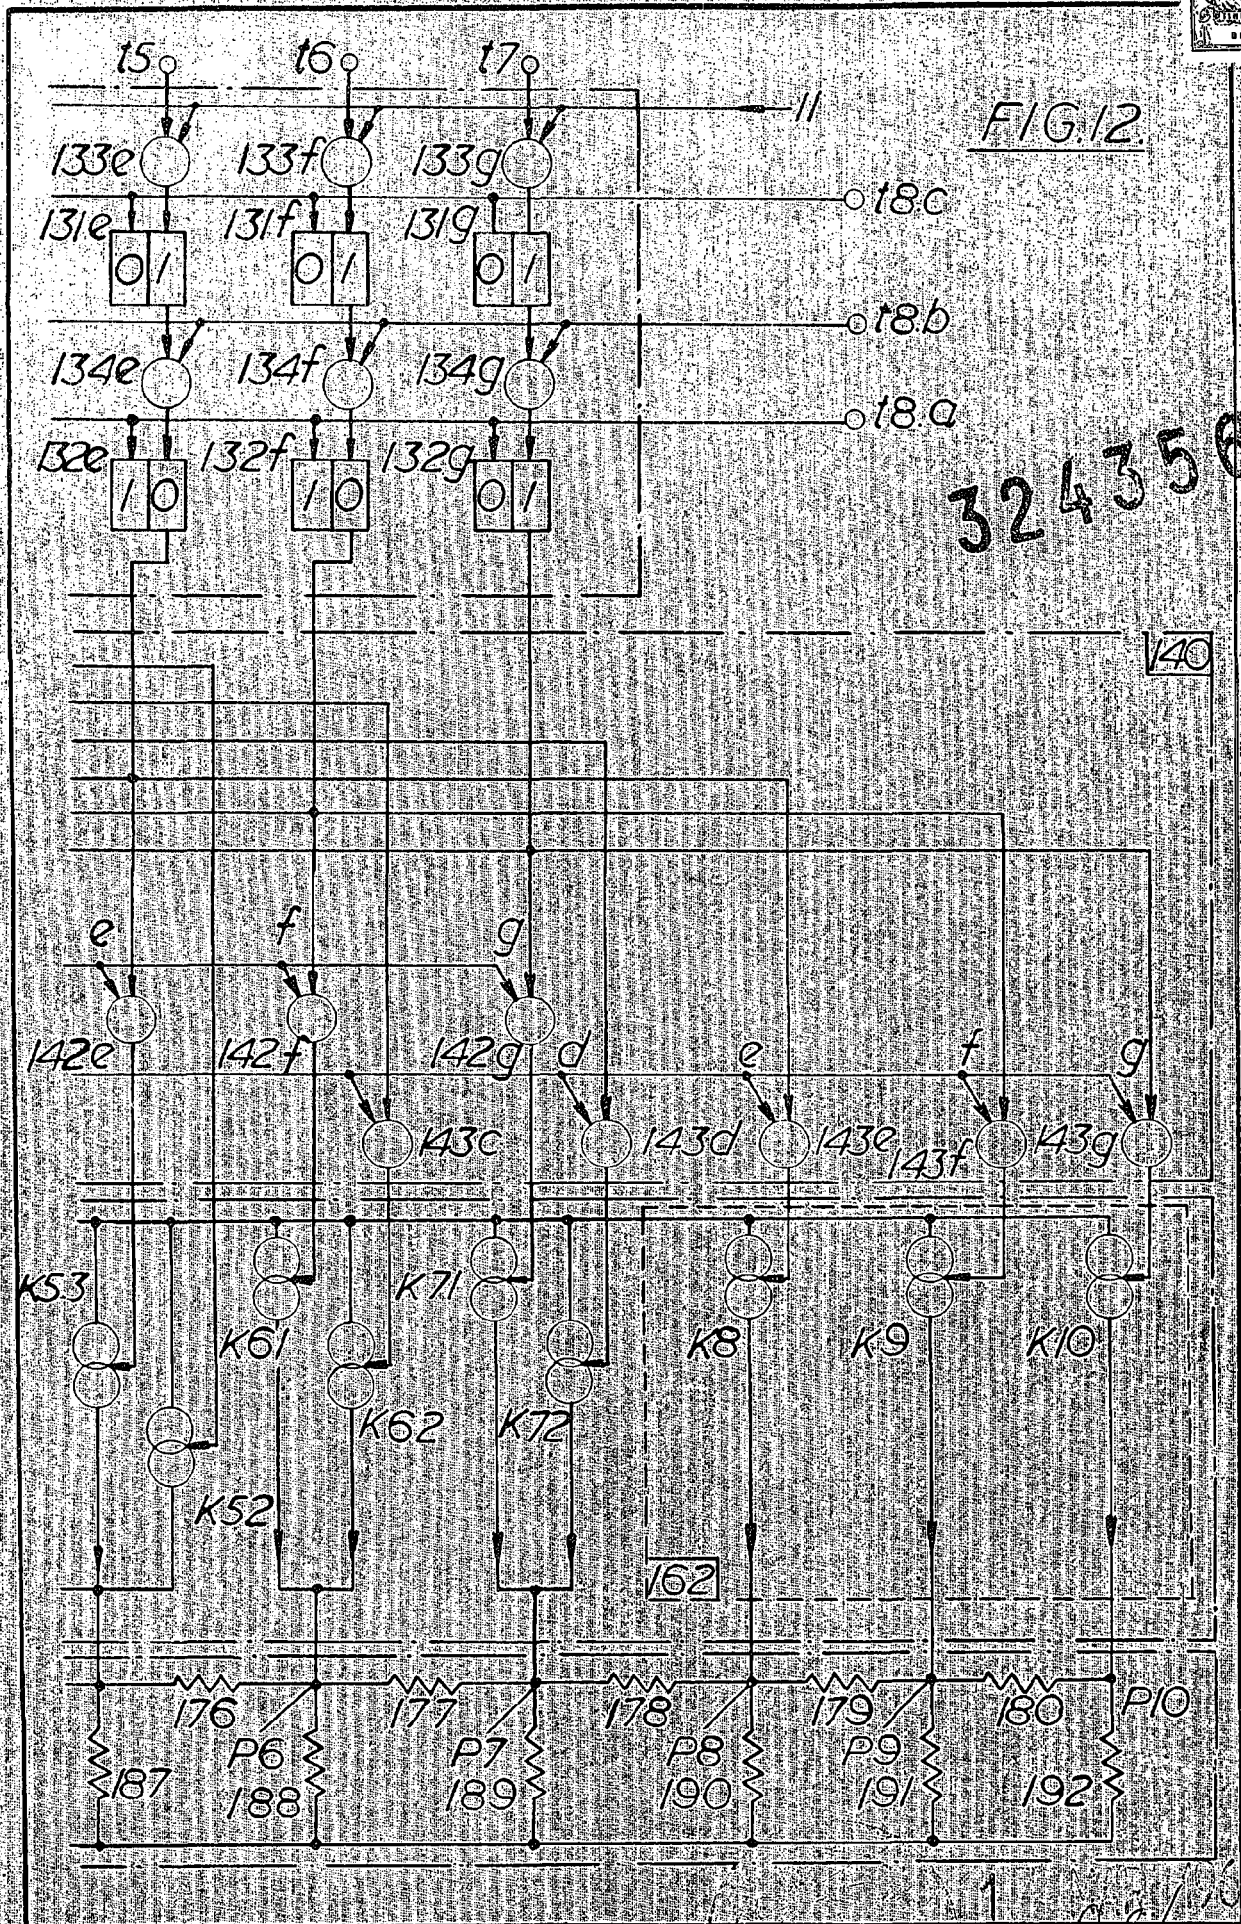 t5 t6 t7
11
FIG.12.
133e 133f 133g
t8.c
131e 131f 131g
0 1 0 1 0 1
t8.b
134e 134f 134g
t8.a
132e 132f 132g
1 0 1 0 0 1
324356
140
e f g
142e 142f 142g d e f g
143c 143d 143e 143f 143g
K53 K61 K71 K8 K9 K10
K62 K72
K52
162
176 177 178 179 180 P10
P6 P7 P8 P9
187 188 189 190 191 192